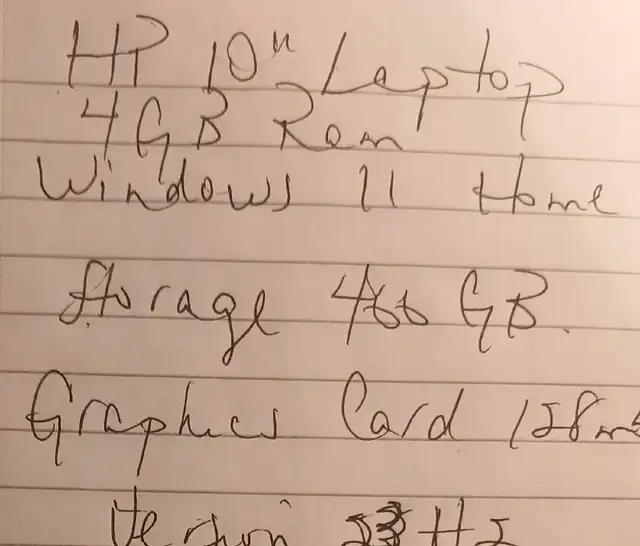 HP 10" Laptop
4 GB Ram
Windows 11 Home
Storage 466 GB.
Graphics Card 128m
Version H2